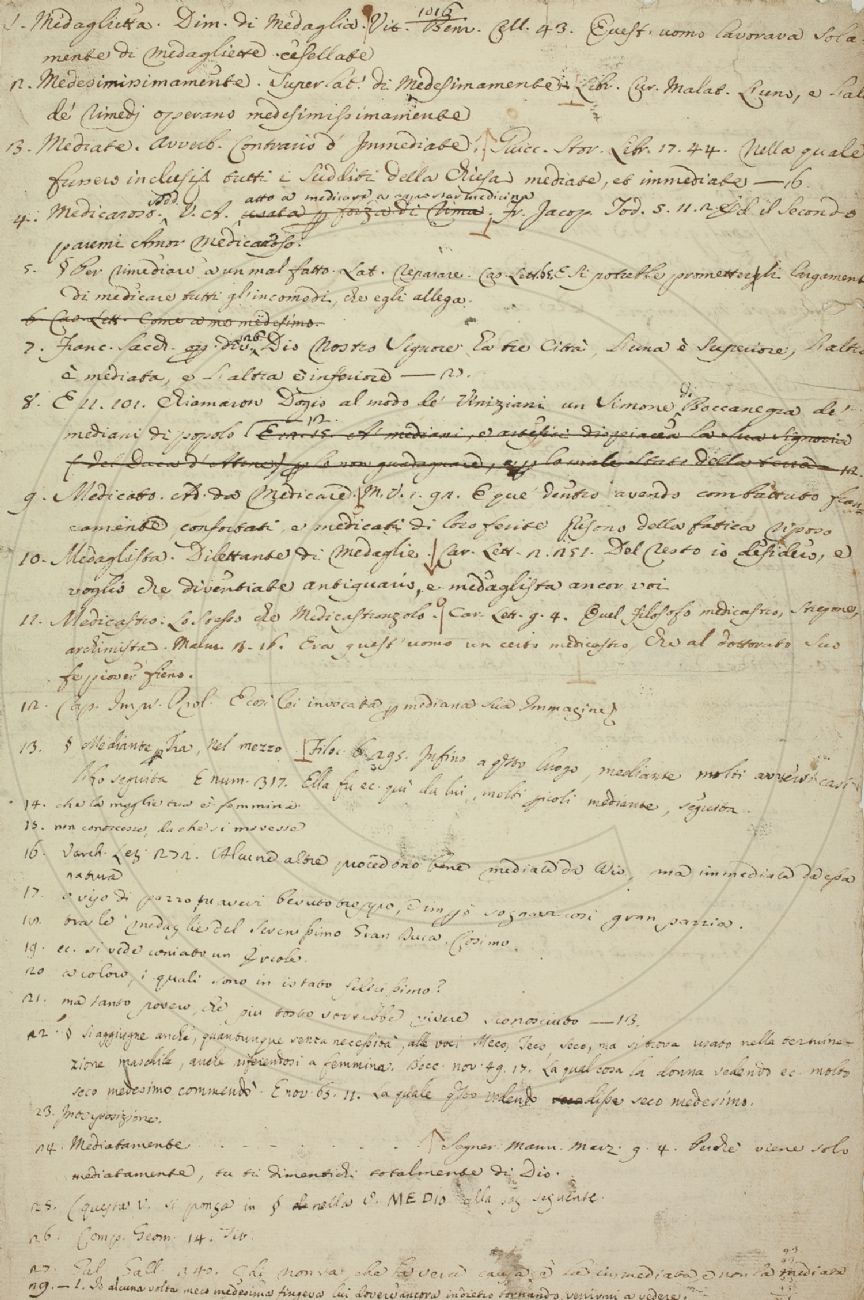 1016
1. Medaglietta. Dim. di Medaglia. Vit. Benv. Cell. 43. Quest' uomo lavorava sola-
mente di medagliette cesellate
12. Medesimissimamente. Superlat. di Medesimamente. Libr. Cur. Malat. L'uno, e l'al
de' rimedj operano medesimissimamente
13. Mediate. Avverb. Contrario d' Immediate. Guicc. Stor. Libr. 17. 44. Nella quale
fussero inclusi tutti i sudditi della Chiesa mediate, et immediate — 16.
4. Medicaroso. V. A. atto a medicare, Fr. Jacop. Tod. 5. 11. 2. il secondo
paremi Amor medicaroso.
5. § Per Rimediare a un mal fatto. Lat. Reparare. Cas. Lett. 65. E si potrebbe prometter gli largament
di medicare tutti gl' incomodi, che egli allega.
6. Cas. Lett. Come a me medesimo.
7. Franc. Sacch. Op. div. 126. Dio Nostro Signore ha tre Città, L'una è superiore, L'altra
è mediata, e l'altra è inferiore — 27.
8. E 11. 101. Chiamaron Dogio al modo de' Viniziani un Simone di Boccanegra de'
mediani di popolo
9. Medicato. Ad. da Medicare. M. V. 1. 92. E que' dentro avendo combattuto fran-
camente, confortati, e medicati di loro ferite fussono della fatica riposo
10. Medaglista. Dilettante di Medaglie. Car. Lett. 2. 251. Del resto io desidero, e
voglio che diventiate antiquario, e medaglista ancor voi
11. Medicastro. Lo stesso che Medicastronzolo. Car. Lett. 9. 4. Quel filosofo medicastro, stregone,
archimista. Malm. 3. 16. Era quest' uomo un certo medicastro, Che al dottorato suo
fe piover fieno.
12. Cap. Impr. Prol. E così lei invocata p mediana sua Immagine
13. § Mediante p Tra, nel mezzo. Filoc. 6. 295. Infino a qsto luogo, mediante molti avversi casi
l'ho seguita. E num. 317. Ella fu ec. qui da lui, molti picoli mediante, seguita.
14. che la moglie tua è femmina
15. non conoscesse, da che si movesse
16. Varch. Lez. 272. Alcune altre procedono bene mediate da Dio, ma immediate da essa
natura
17. avviso di pazzo, tu avevi bevuto troppo, e sognavi così gran pazzia.
18. tra le medaglie del Serenissimo Gran Duca Cosimo.
19. ec. si vede coniato un Ercole.
20 a coloro, i quali sono in istato felicissimo?
21. ma tanto povero, che piu tosto vorrebbe vivere sconosciuto — 13.
22. § si aggiugne anche, quantunque senza necessità, alle voci Meco, Teco Seco, ma si trova usato nella termine-
zione maschile, anche riferendosi a femmina. Bocc. nov. 49. 17. La qual cosa la donna vedendo ec. molto
seco medesimo commendò. E nov. 65. 11. La quale qsto udendo disse seco medesimo.
23. Interposizione.
24. Mediatamente . . . . Segner. Mann. Marz. 9. 4. Perchè viene solo
mediatamente, tu ti dimentichi totalmente di Dio.
25. (questa V. si ponga in § nella V. MEDIO alla pag. seguente.
26. Comp. Geom. 14. Tir.
27. Gal. Gall. 240. Chi non sa che la vera causa è la immediata, e non la mediata
29. — 1. Se alcuna volta meco medesima fingeva lui dovere ancora indietro tornando venirmi a vedere.